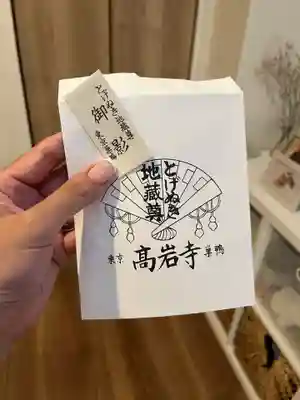 とげぬき地蔵尊
御影
東京巣鴨
とげぬき
地蔵尊
東京 高岩寺 巣鴨